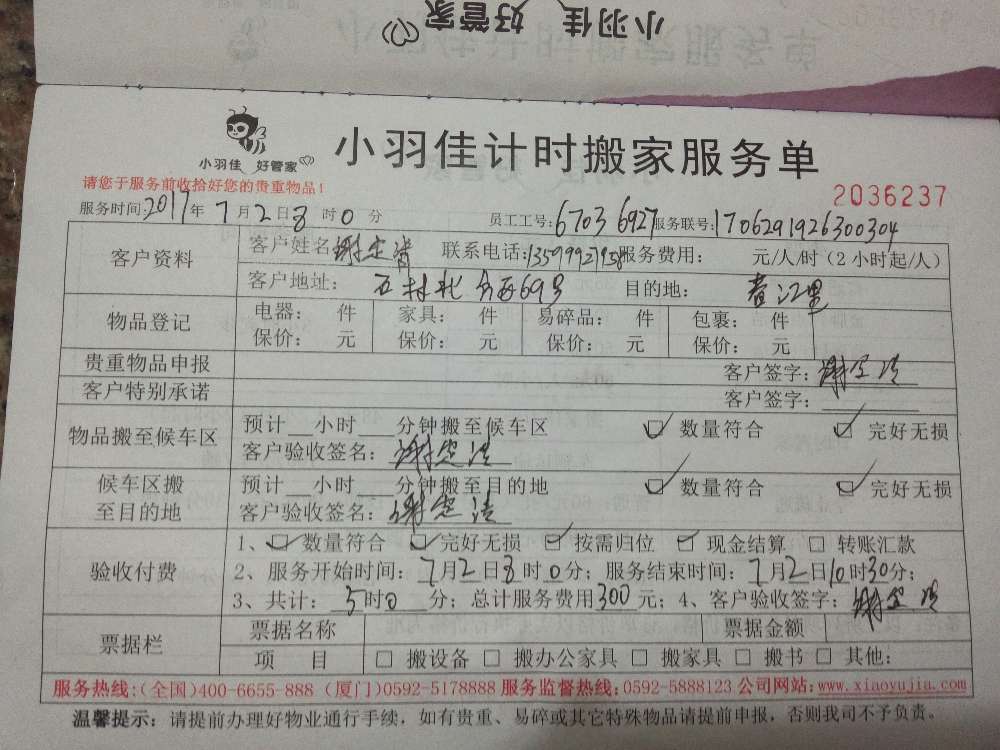 小羽佳 好管家
小羽佳 好管家
小羽佳计时搬家服务单
请您于服务前收拾好您的贵重物品!
2036237
服务时间:2017年7月2日8时0分 员工工号:6703 6927 服务联号:1706291926300304
客户资料 客户姓名 联系电话: 服务费用: 元/人/时(2小时起/人)
客户地址: 69号 目的地:
物品登记 电器: 件 家具: 件 易碎品: 件 包裹: 件
保价: 元 保价: 元 保价: 元 保价: 元
贵重物品申报 客户签字:
客户特别承诺 客户签字:
物品搬至候车区 预计 小时 分钟搬至候车区 数量符合 完好无损
客户验收签名:
候车区搬至目的地 预计 小时 分钟搬至目的地 数量符合 完好无损
客户验收签名:
验收付费 1、数量符合 完好无损 按需归位 现金结算 转账汇款
2、服务开始时间:7月2日8时0分;服务结束时间:7月2日10时30分;
3、共计:5时0分;总计服务费用300元;4、客户验收签字:
票据栏 票据名称 票据金额
项 目 搬设备 搬办公家具 搬家具 搬书 其他:
服务热线:(全国)400-6655-888 (厦门)0592-5178888 服务监督热线:0592-5888123 公司网站:www.xiaoyujia.com
温馨提示:请提前办理好物业通行手续,如有贵重、易碎或其它特殊物品请提前申报,否则我司不予负责。